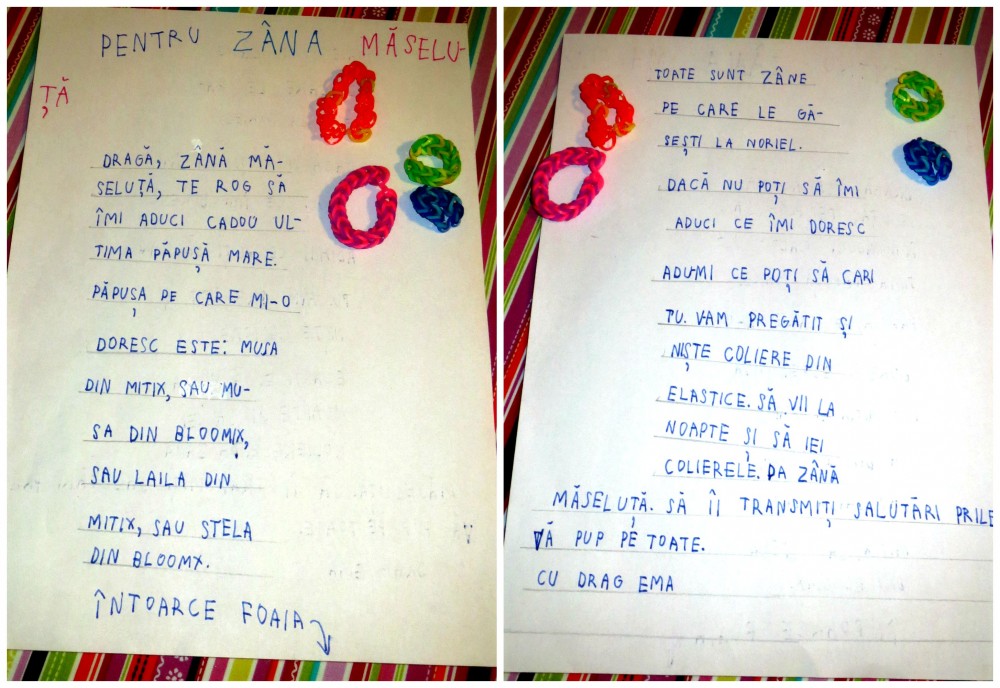 PENTRU ZÂNA MĂSELU-
ȚĂ
DRAGĂ, ZÂNĂ MĂ-
SELUȚĂ, TE ROG SĂ
ÎMI ADUCI CADOU UL-
TIMA PĂPUȘĂ MARE.
PĂPUȘA PE CARE MI-O
DORESC ESTE: MUSA
DIN MITIX, SAU MU-
SA DIN BLOOMIX,
SAU LAILA DIN
MITIX, SAU STELA
DIN BLOOMX.
ÎNTOARCE FOAIA
TOATE SUNT ZÂNE
PE CARE LE GĂ-
SEȘTI LA NORIEL.
DACĂ NU POȚI SĂ ÎMI
ADUCI CE ÎMI DORESC
ADU-MI CE POȚI SĂ CARI
TU. VAM PREGĂTIT ȘI
NIȘTE COLIERE DIN
ELASTICE. SĂ VII LA
NOAPTE ȘI SĂ IEI
COLIERELE. DA ZÂNĂ
MĂSELUȚĂ. SĂ ÎI TRANSMIȚI SALUTĂRI PRILE
VĂ PUP PE TOATE.
CU DRAG EMA